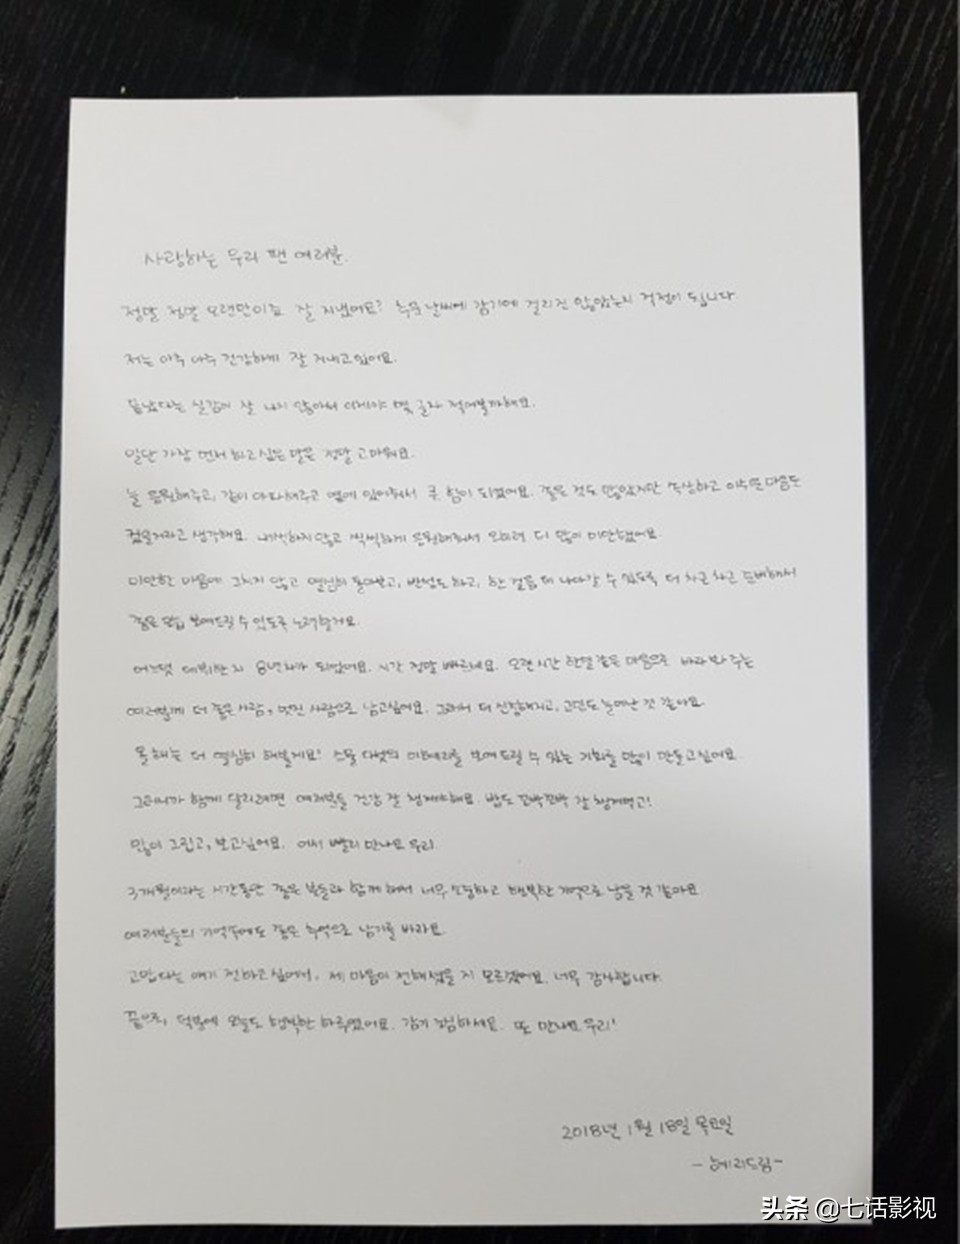 사랑하는 우리 팬 여러분.
정말 정말 오랜만이죠 잘 지냈어요? 추운 날씨에 감기에 걸리진 않았는지 걱정이 됩니다
저는 아주 아주 건강하게 잘 지내고있어요.
끝났다는 실감이 잘 나지 않아서 이제야 몇 글자 적어볼까해요.
일단 가장 먼저 하고싶은 말은 정말 고마워요.
늘 응원해주고, 같이 아파해주고 옆에 있어줘서 큰 힘이 되었어요. 좋은 것도 많았지만 속상하고 아픈 마음도
컸을거라고 생각해요. 내색하지 않고 씩씩하게 응원해줘서 오히려 더 많이 미안했어요.
미안한 마음에 그치지 않고 열심히 돌아보고, 반성도 하고, 한 걸음 더 나아갈 수 있도록 더 차근 차근 준비해서
좋은 모습 보여드릴 수 있도록 노력할거요.
어느덧 데뷔한 지 8년차가 되었어요. 시간 정말 빠르네요. 오랜 시간 한결같은 마음으로 바라봐 주는
여러분께 더 좋은 사람, 멋진 사람으로 남고싶어요. 그래서 더 신중해지고, 고민도 늘어난 것 같아요.
올해는 더 열심히 해볼게요! 스물 다섯의 이혜리를 보여드릴 수 있는 기회를 많이 만들고싶어요.
그러니까 함께 달리려면 여러분들 건강 잘 챙겨야해요. 밥도 꼬박꼬박 잘 챙겨먹고!
많이 그립고, 보고싶어요. 어서 빨리 만나요 우리.
3개월이라는 시간동안 좋은 분들과 함께 해서 너무 소중하고 행복한 기억으로 남을 것 같아요
여러분들의 기억속에도 좋은 추억으로 남기를 바라요.
고맙다는 얘기 전하고 싶어서, 제 마음이 전해졌을 지 모르겠어요. 너무 감사합니다.
끝으로, 덕분에 오늘도 행복한 하루였어요. 감기 조심하세요. 또 만나요 우리!
2018년 1월 18일 목요일
-혜리드림-
头条 @七话影视